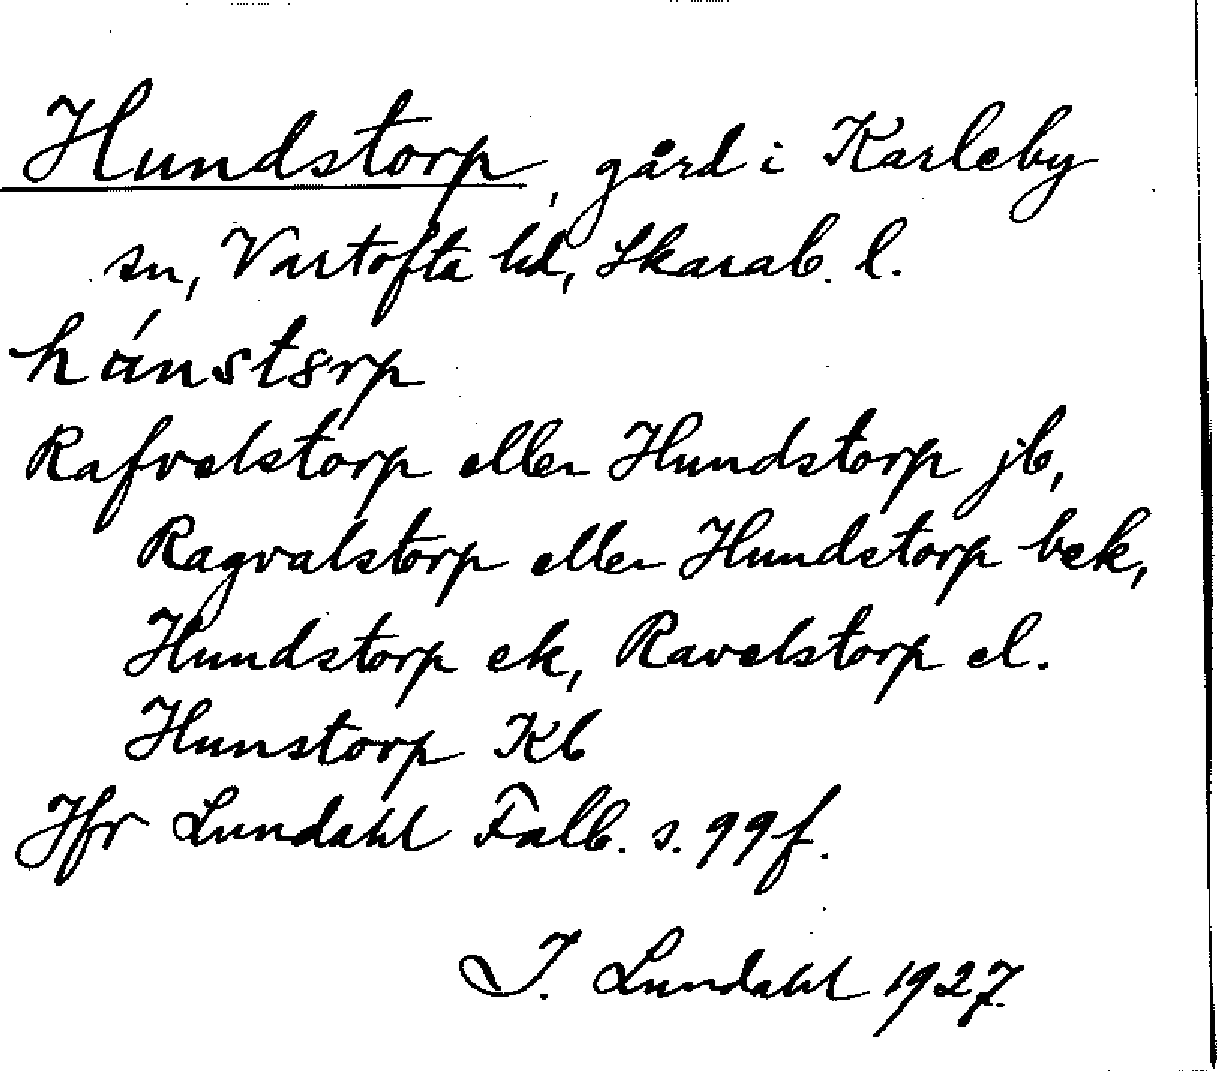 Hundstorp, gård i Karleby
sn, Vartofta hd, Skarab. l.
hánstsrp
Rafvelstorp eller Hundstorp jb,
Ragvalstorp eller Hundstorp bek,
Hundstorp ek, Ravelstorp el.
Hunstorp Kb
Jfr Lundahl Falb. s. 99 f.
I. Lundahl 1927.